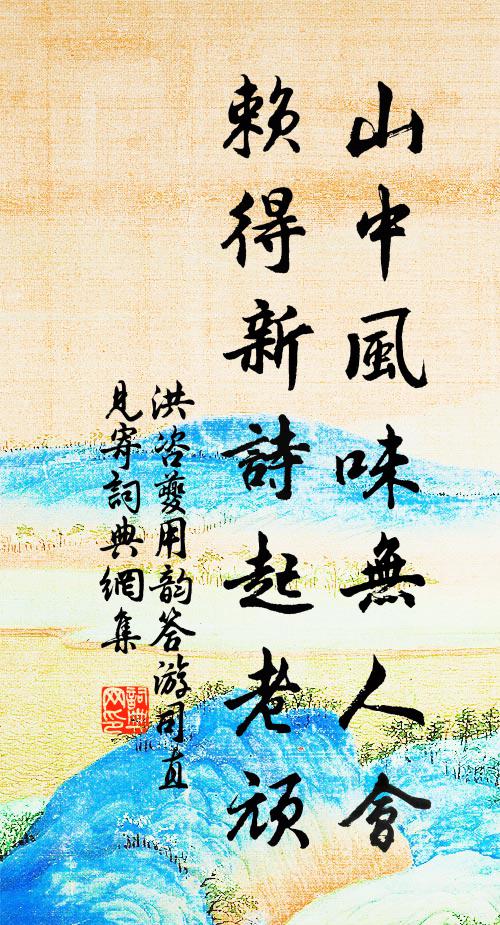 山中風味無人會
賴得新詩起老頑
洪咨夔用韵答游司直
見寄詞典網集